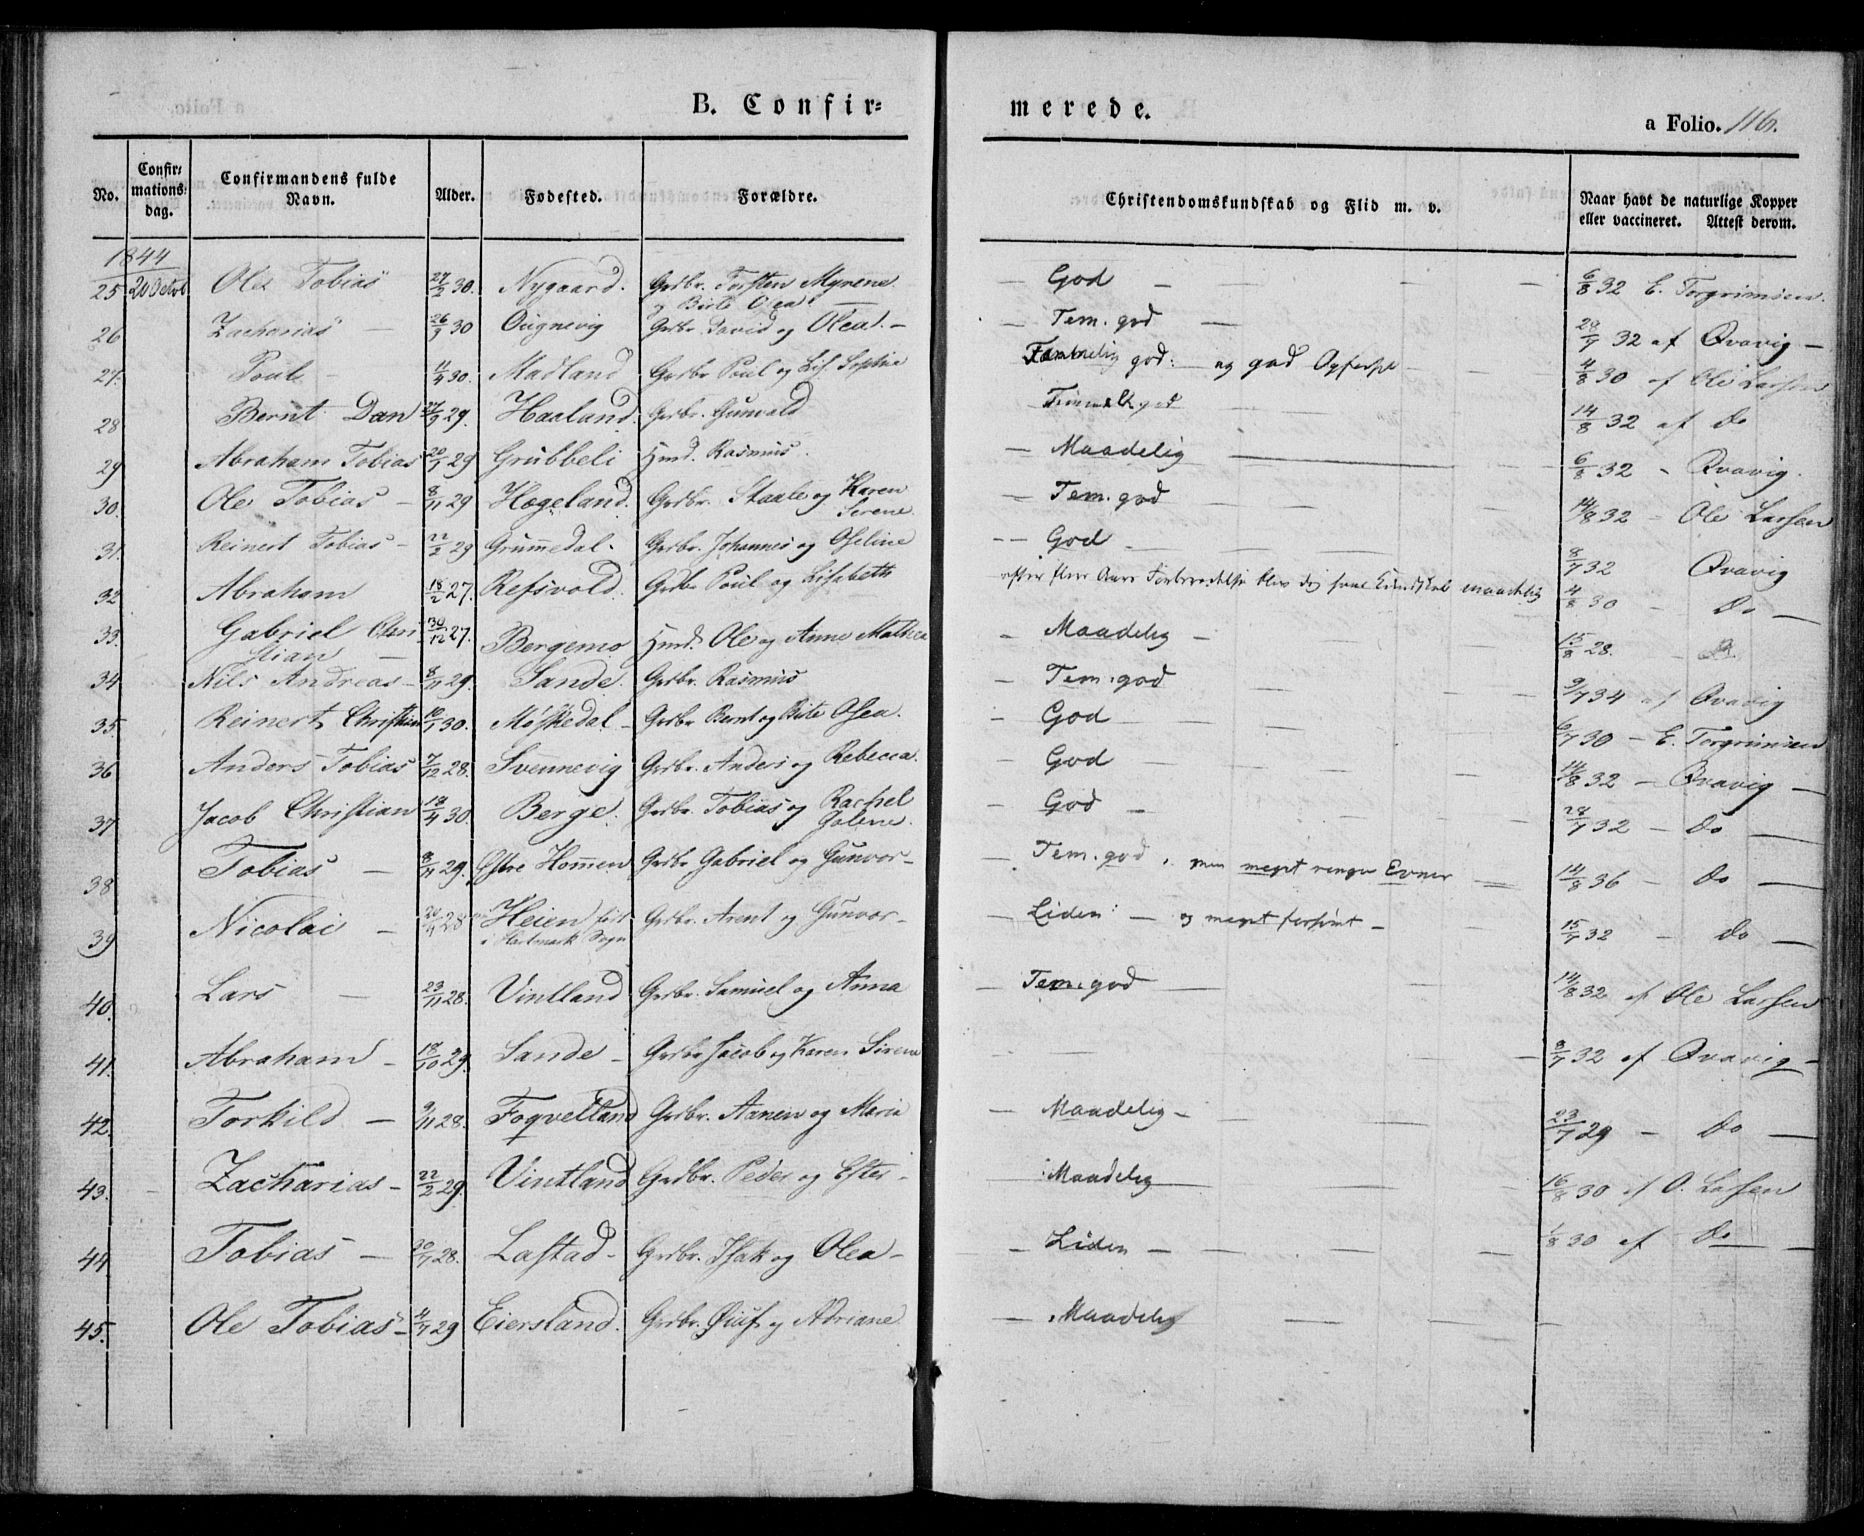 B. Confir=
merede.
a Folio. 116.
No.
Confir=
mations=
dag.
Confirmandens fulde
Navn.
Alder.
Fødested.
Forældre.
Christendomskundskab og Flid m. v.
Naar havt de naturlige Kopper
eller vaccineret. Attest derom.
1844
25 20 Octob Ole Tobias 27/2 30. Nygaard. Grdbr. Torsten Myrene — God — 6/8 32 E. Torgrimsen.
og Birte Olea
26 Zacharias — 26/3 30 Ougnevig Grdbr. David og Olea. — Tem. god — 29/7 32 af Qvavig —
27. Poul — 11/4 30. Madland Grdbr. Poul og Lis. Sophie Temmelig god: — og god Opførsel 4/8 30 af Ole Larsen
28 Bernt Dan 27/9 29. Haaland. Grdbr. Gunvald 14/8 32 af Do
29 Abraham Tobias 20/7 29 Grubbeli Hmd. Rasmus. — Maadelig — 6/8 32 - Qvavig.
30. Ole Tobias — 8/11 29 Hægeland. Grdbr. Staale og Karen — Tem. god — 14/8 32 - Ole Larsen
Serene
31. Reinert Tobias — 22/2 29 Grummedal. Grdbr. Johannes og Oseline — God — 8/7 32 Qvavig
32 Abraham 18/2 27. Refsvold. Grdbr. Poul og Lisabeth efter flere Aars Forberedelse blev dog hans Kundskab maadelig 4/8 30 - Do —
33. Gabriel Chri 30/12 27. Bergemo Hmd. Ole og Anne Malena — Maadelig — 15/8 28.
stian —
34 Nils Andreas — 8/11 29. Sande. Grdbr. Rasmus — Tem. god 9/7 34 af Qvavig
35. Reinert Christian 10/7 30. Møskedal — Grdbr. Bernt og Birte Osea. — God 6/7 30 — E. Torgrimsen
36 Anders Tobias 7/12 28. Svennevig Grdbr. Anders og Rebecca. — God 14/8 32 — Qvavig —
37 Jacob Christian 18/4 30. Berge. Grdbr. Tobias og Rachel — God — 28/7 32 — Do —
Golene.
38 Tobias — 8/11 29. Østre Hommen Grdbr. Gabriel og Gunvor — Tem. god, men meget ringe Evner — 14/8 36 — Do —
39 Nicolai — 20/4 28 Heien født Grdbr. Arent og Gunvor — Liden: — og meget forsømt — 15/7 32 — Do —
i Halmark Sogn
40. Lars — 23/11 28. Vintland Grdbr. Samuel og Anna — Tem. god — 14/8 32 af Ole Larsen
41. Abraham — 18/10 29. Sande — Grdbr. Jacob og Karen Sirene — 8/7 32 af Qvavig —
42. Torkild — 9/11 28. Foqvetland Grdbr. Aanen og Maria — Maadelig — 23/7 29 — Do —
43. Zacharias — 22/2 29. Vintland Grdbr. Peder og Ester — Maadelig — 16/8 30 af O. Larsen
44 Tobias — 20/7 28. Lastad — Grdbr. Isak og Olea — Liden — 1/8 30 af Do —
45. Ole Tobias — 4/7 29 Eiersland. Grdbr. Øiuf og Adriane — Maadelig —